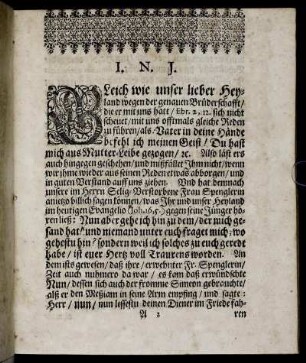 I. N. J.
GLeich wie unser lieber Hey-
land wegen der genauen Brüderschafft/
die er mit uns hatt/ Ebr. 2, 11. sich nicht
scheuet/ mit uns offtmals gleiche Reden
zu führen/ als: Vater in deine Hände
befehl ich meinen Geist/ Du hast
mich aus Mutter-Leibe gezogen/ ꝛc. Also läst er
auch hingegen geschehen/ und mißfället Ihm nicht/ wenn
wir ihme wieder aus seinen Reden etwas abborgen/ und
in guten Verstand auff uns ziehen. Und hat demnach
unsere im HErrn Selig-Verstorbene Frau Spenglerin
anietzo billich sagen können/ was Ihr und unser Heyland
im heutigen Evangelio (Joh. 16, 5.) gegen seine Jünger hö-
ren ließ: Nun aber gehe ich hin zu dem/ der mich ge-
sand hat/ und niemand unter euch fraget mich: wo
gehestu hin/ sondern weil ich solches zu euch geredt
habe/ ist euer Hertz voll Traurens worden. An
dem ists gewesen/ daß ihr/ erwehnter Fr. Spenglerin/
Zeit auch nuhmero da war/ es kam daß erwündschte
Nun/ dessen sich auch der fromme Simeon gebrauchte/
alß er den Meßiam in seine Arm empfing/ und sagte:
HErr/ nun/ nun lessestu deinen Diener im Friede fah-
A 2 ren